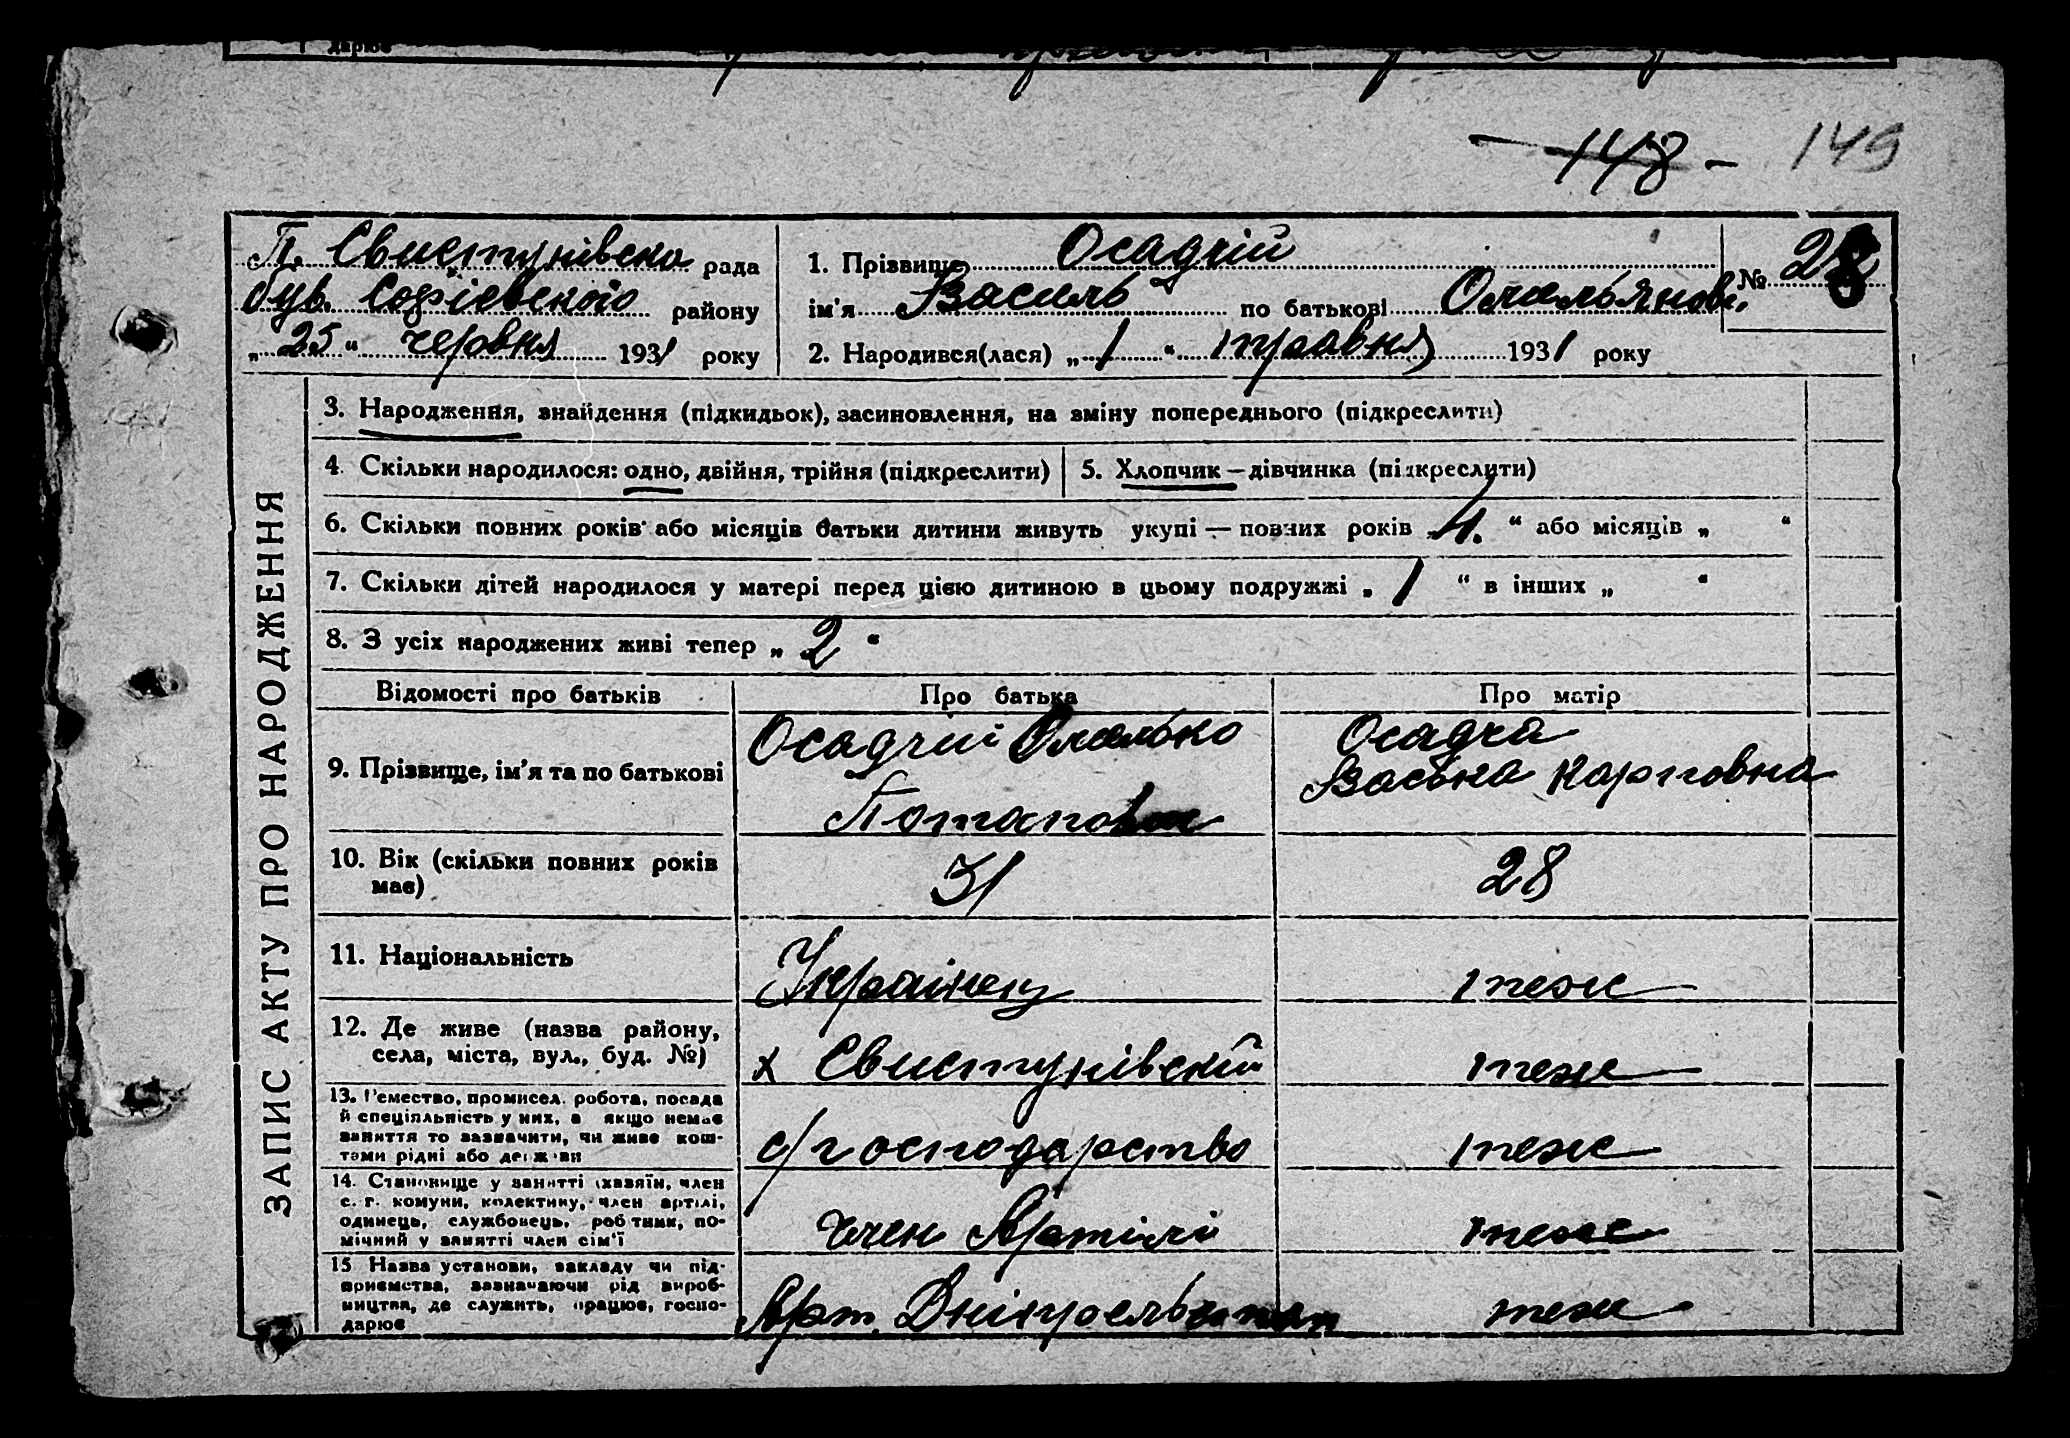 дарює
148 - 149
П. Свистунівська рада
був. Софієвского району
„ 25 “ червня 1931 року
1. Прізвище Осадчій
ім'я Василь по батькові Омельянов.
№ 28
2. Народився(лася) „ 1 “ травня 1931 року
ЗАПИС АКТУ ПРО НАРОДЖЕННЯ
3. Народження, знайдення (підкидьок), засиновлення, на зміну попереднього (підкреслити)
4. Скільки народилося: одно, двійня, трійня (підкреслити)
5. Хлопчик — дівчинка (підкреслити)
6. Скільки повних років або місяців батьки дитини живуть укупі — повних років „ 4. “ або місяців „ “
7. Скільки дітей народилося у матері перед цією дитиною в цьому подружжі „ 1 “ в інших „ “
8. З усіх народжених живі тепер „ 2 “
Відомості про батьків
Про батька
Про матір
9. Прізвище, ім'я та по батькові
Осадчий Омелько
Потапов
Осадча
Васька Карповна
10. Вік (скільки повних років
має)
31
28
11. Національність
Українец
теж
12. Де живе (назва району,
села, міста, вул., буд. №)
х Свистунівский
теж
13. Ремество, промисел, робота, посада
й спеціяльність у них, а якщо немає
заняття то зазначити, чи живе кош-
тами рідні або держави
с/господарство
теж
14. Становище у занятті (хазяїн, член
с. г. комуни, колективу, член артілі,
одинець, службовець, робітник, по-
мічний у занятті член сім'ї
член Артілі
теж
15 Назва установи, закладу чи під-
приємства, зазначаючи рід вироб-
ництва, де служить, працює, госпо-
дарює
Арт.
теж